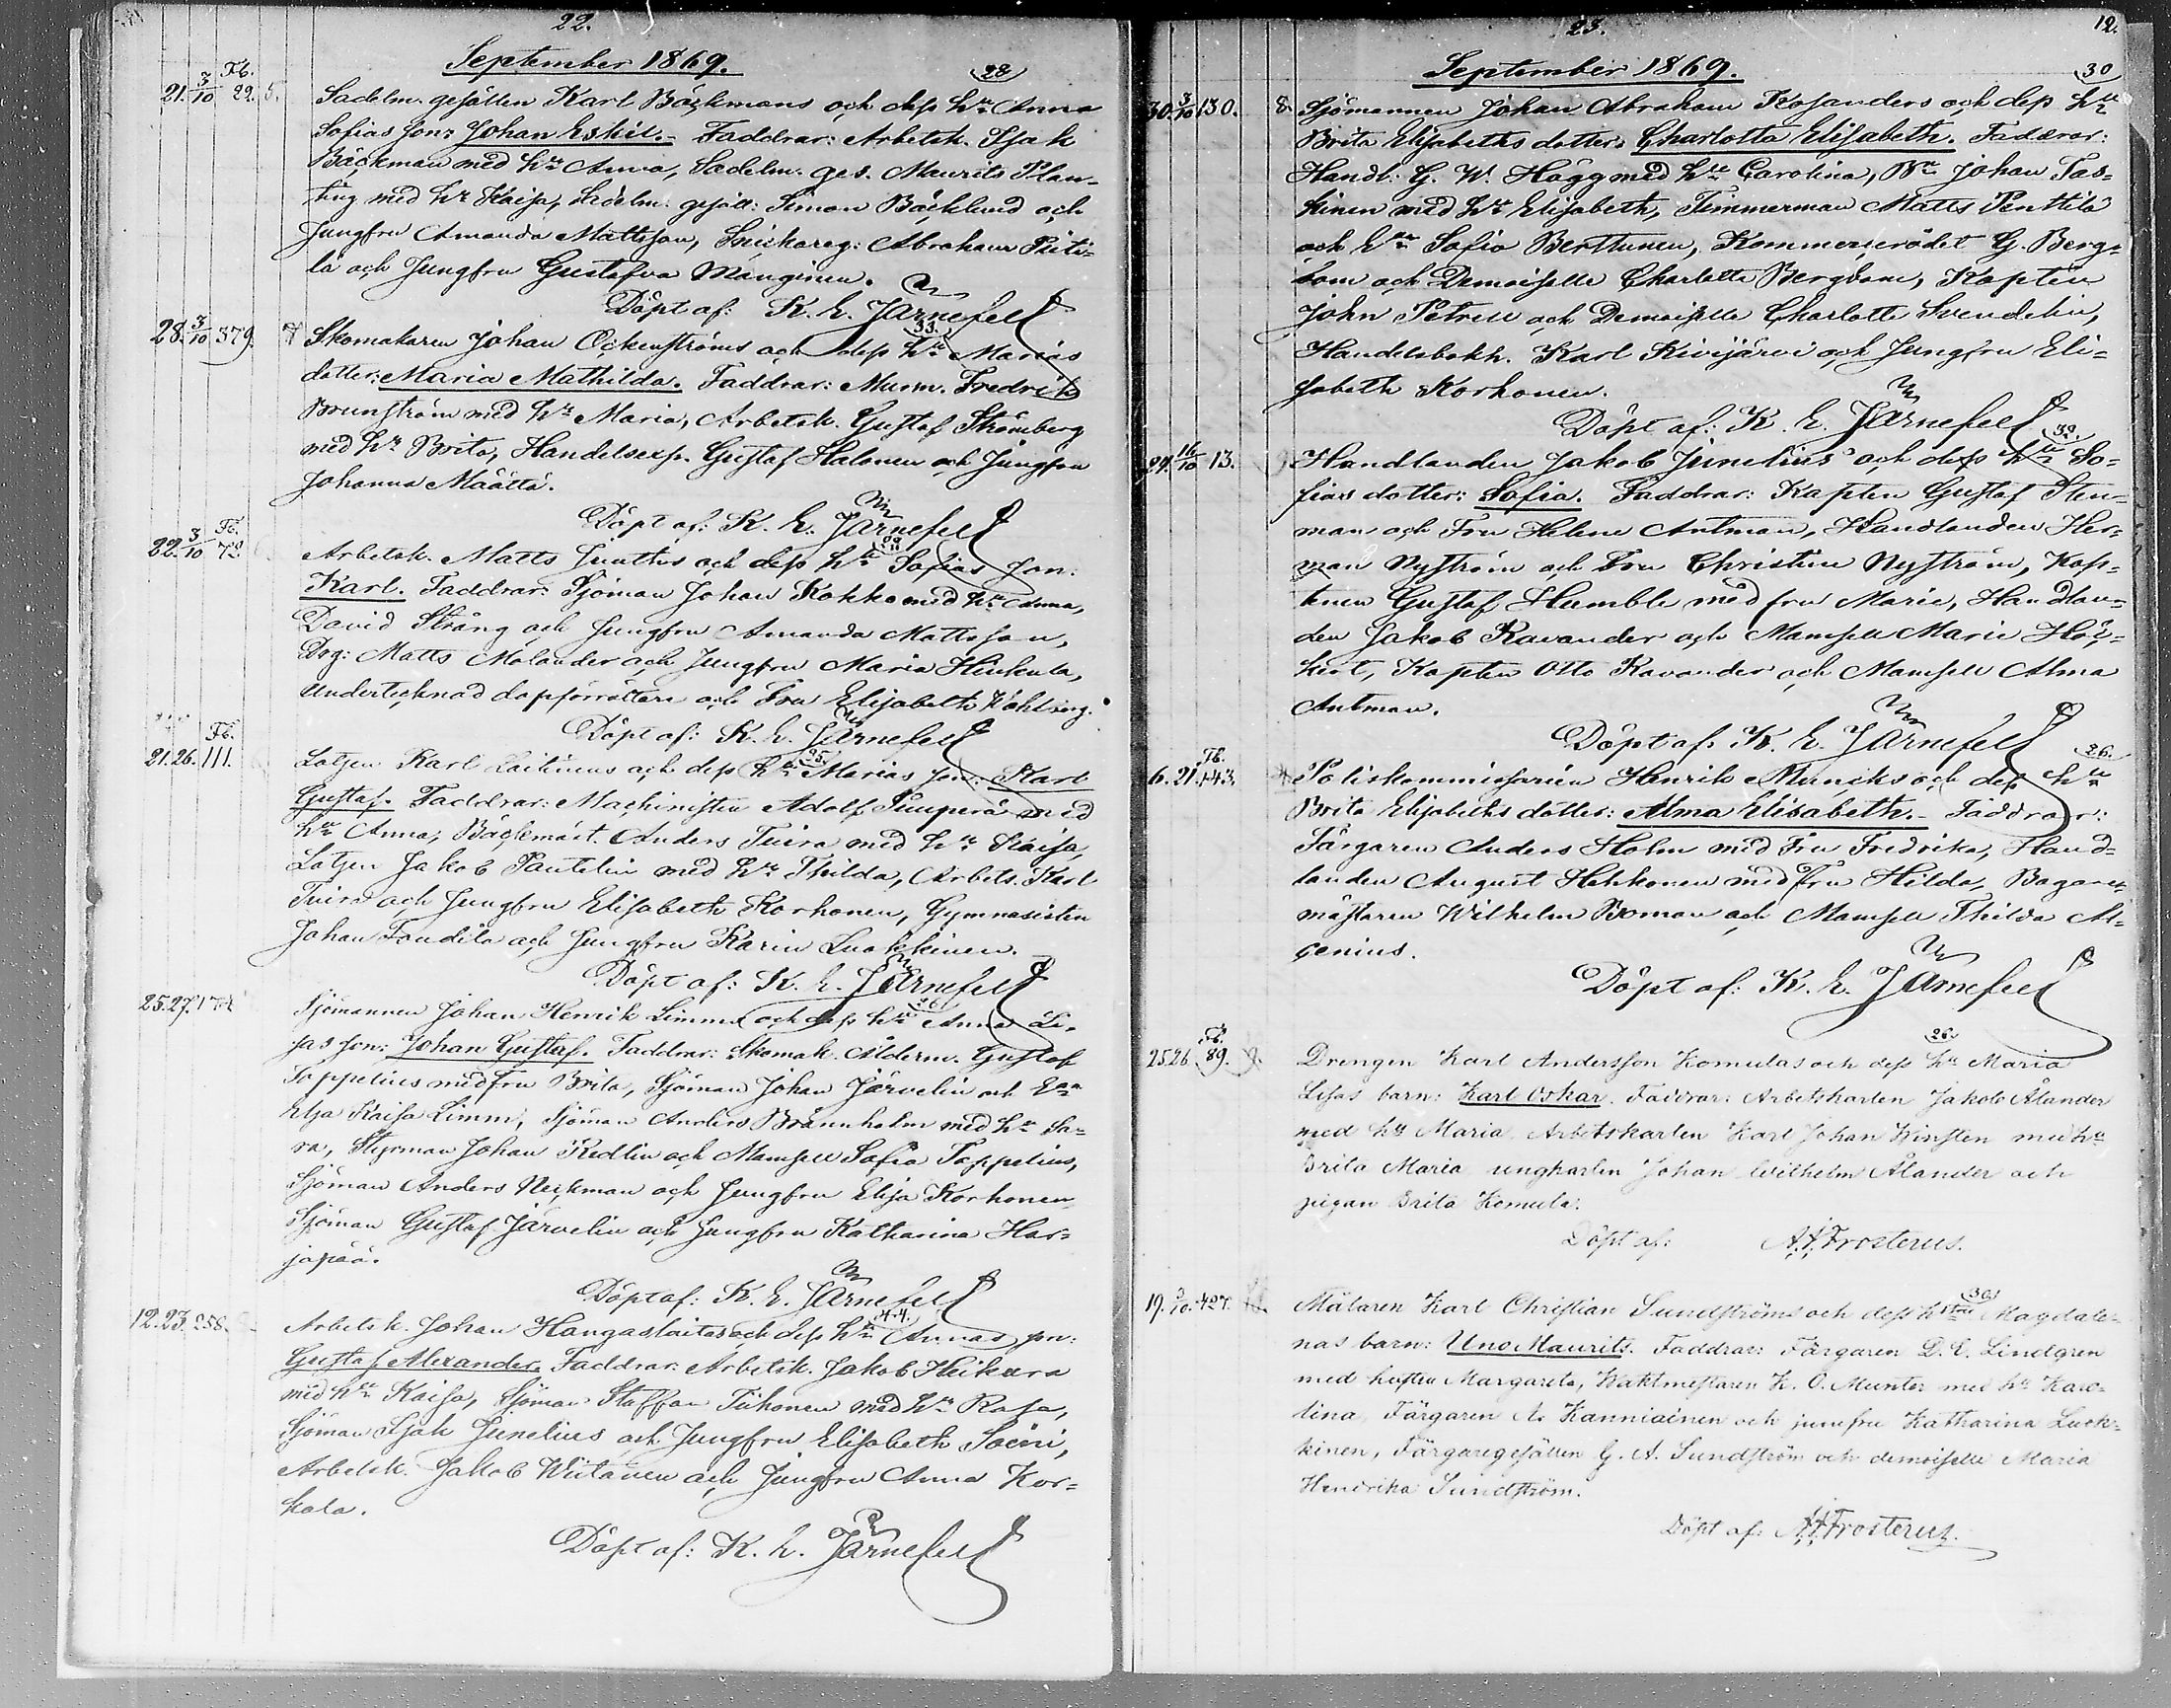 22.
September 1869.
21. 3/10 Fb. 22. 6. Sadelm. gesällen Karl Bäckmans och dess hu Anna (28)
Sofias son: Johan Eskil. Faddrar: Arbetsk. Isak
Bäckman med hu Anna, Sadelm. ges. Maurits Plan-
ting med hu Kaisa, Sadelm. gesäll: Simon Bäcklund och
Jungfru Amanda Mattsson, Snickareg: Abraham
la och Jungfru Gustafva Manginen.
Döpt af: K. E. Järnefelt
28. 3/10 379. 7 Skomakaren Johan Ockenströms och dess hu Marias (33.)
dotter: Maria Mathilda. Faddrar: Murm. Fredrik
Brunström med hu Maria, Arbetsk. Gustaf Strömberg
med hu Brita, Handelsexp. Gustaf Halonen och Jungfru
Johanna Määttä.
Döpt af: K. E. Järnefelt
22. 3/10 Fb. 72. Arbetsk. Matts Junttus och dess hu Sofias son:
Karl. Faddrar: Sjöman Johan Kokko med hu Anna,
David Sträng och Jungfru Amanda Mattsson,
Drg: Matts Molander och Jungfru Maria Hiukula,
Undertecknad dopförrättare och Fru Elisabeth
Döpt af: K. E. Järnefelt
21. 26. Fb. 111. Lotsen Karl Laitinens och dess hu Marias son: Karl (25.)
Gustaf. Faddrar: Machinisten Adolf Simperä med
hu Anna, Bäckmäst. Anders Tuira med hu Kaisa,
Lotsen Jakob Pantelin med hu Thilda, Arbets. Karl
Tuira och Jungfru Elisabeth Korhonen, Gymnasisten
Johan Tondila och Jungfru Karin Luokkinen.
Döpt af: K. E. Järnefelt
25. 27. 174 Sjömannen Johan Henrik Limma och dess hu Anna Li- (26)
sas son: Johan Gustaf. Faddrar: Skomak. Ålderm. Gustaf
Toppelius med fru Brita, Sjöman Johan Järvelin och Ea
Elsa Kaisa Limm, Sjöman Anders Brännholm med hu Sa-
ra, Styrman Johan Kedlin och Mamsell Sofia Toppelius,
Sjöman Anders Neckman och Jungfru Elisa Korhonen,
Sjöman Gustaf Järvelin och Jungfru Katharina Har-
japää.
Döpt af: K. E. Järnefelt
12. 23. 258. Arbetsk. Johan Hangaslaitas och dess hu Annas son: (44.)
Gustaf Alexander. Faddrar: Arbetsk. Jakob Heikura
med hu Kaisa, Sjöman Staffan Tiihonen med hu Rosa,
Sjöman Isak Junelius och Jungfru Elisabeth Soini,
Arbetsk. Jakob Wiitanen och Jungfru Anna Kor-
kala.
Döpt af: K. E. Järnefelt
23.
12.
September 1869.
30. 3/10 130. 8. Sjömannen Johan Abraham Kosanders och dess hu (30)
Brita Elisabeths dotter: Charlotta Elisabeth. Faddrar:
Handl: G. W. Hägg med hu Carolina, Bn Johan Tas-
kinen med hu Elisabeth, Timmerman Matts Penttilä
och Ea Sofia Berttunen, Kommerserådet G. Berg-
bom och Demoiselle Charlotta Bergbom, Kapten
John Petrell och Demoiselle Charlotte Svendelin,
Handelsbokh. Karl Kivijärvi och Jungfru Eli-
sabeth Korhonen.
Döpt af: K. E. Järnefelt
27. 16/10 13. 9. Handlanden Jakob Junelius' och dess hu So- (32.)
fias dotter: Sofia. Faddrar: Kapten Gustaf Sten-
man och Fru Helene Antman, Handlanden Her-
man Nyström och Fru Christine Nyström, Kap-
tenen Gustaf Humble med fru Marie, Handlan-
den Jakob Ravander och Mamsell Marie Höc-
kert, Kapten Otto Ravander och Mamsell Alma
Antman.
Döpt af: K. E. Järnefelt
6. 21. Fb. 143. Poliskommissarien Henrik Muncks och dess hu (26.)
Brita Elisabeths dotter: Alma Elisabeth. Faddrar:
Färgaren Anders Holm med Fru Fredrika, Hand-
landen August Hohkonen med Fru Hilda, Bagare-
mästaren Wilhelm Boman och Mamsell Thilda Al-
cenius.
Döpt af: K. E. Järnefelt
25. 26. Fb. 89. Drengen Karl Andersson Komulas och dess hu Maria (26.)
Lisas barn: Karl Oskar. Faddrar: Arbetskarlen Jakob Ålander
med hu Maria, Arbetskarlen Karl Johan Winsten med hu
Brita Maria ungkarlen Johan Wilhelm Ålander och
pigan Brita Komula.
Döpt af: A. J. Frosterus.
19. 3/10 427. Målaren Karl Christian Sundströms och dess hustru Magdale- (36)
nas barn: Uno Maurits. Faddrar: Färgaren D. E. Lindgren
med hustru Margareta, Waktmestaren K. O. Munter med hu Karo-
lina, Färgaren A. Kanniainen och jumfru Katharina Luok-
kinen, Färgaregesällen G. A. Sundström och demoiselle Maria
Hendrika Sundström.
Döpt af: A. J. Frosterus.